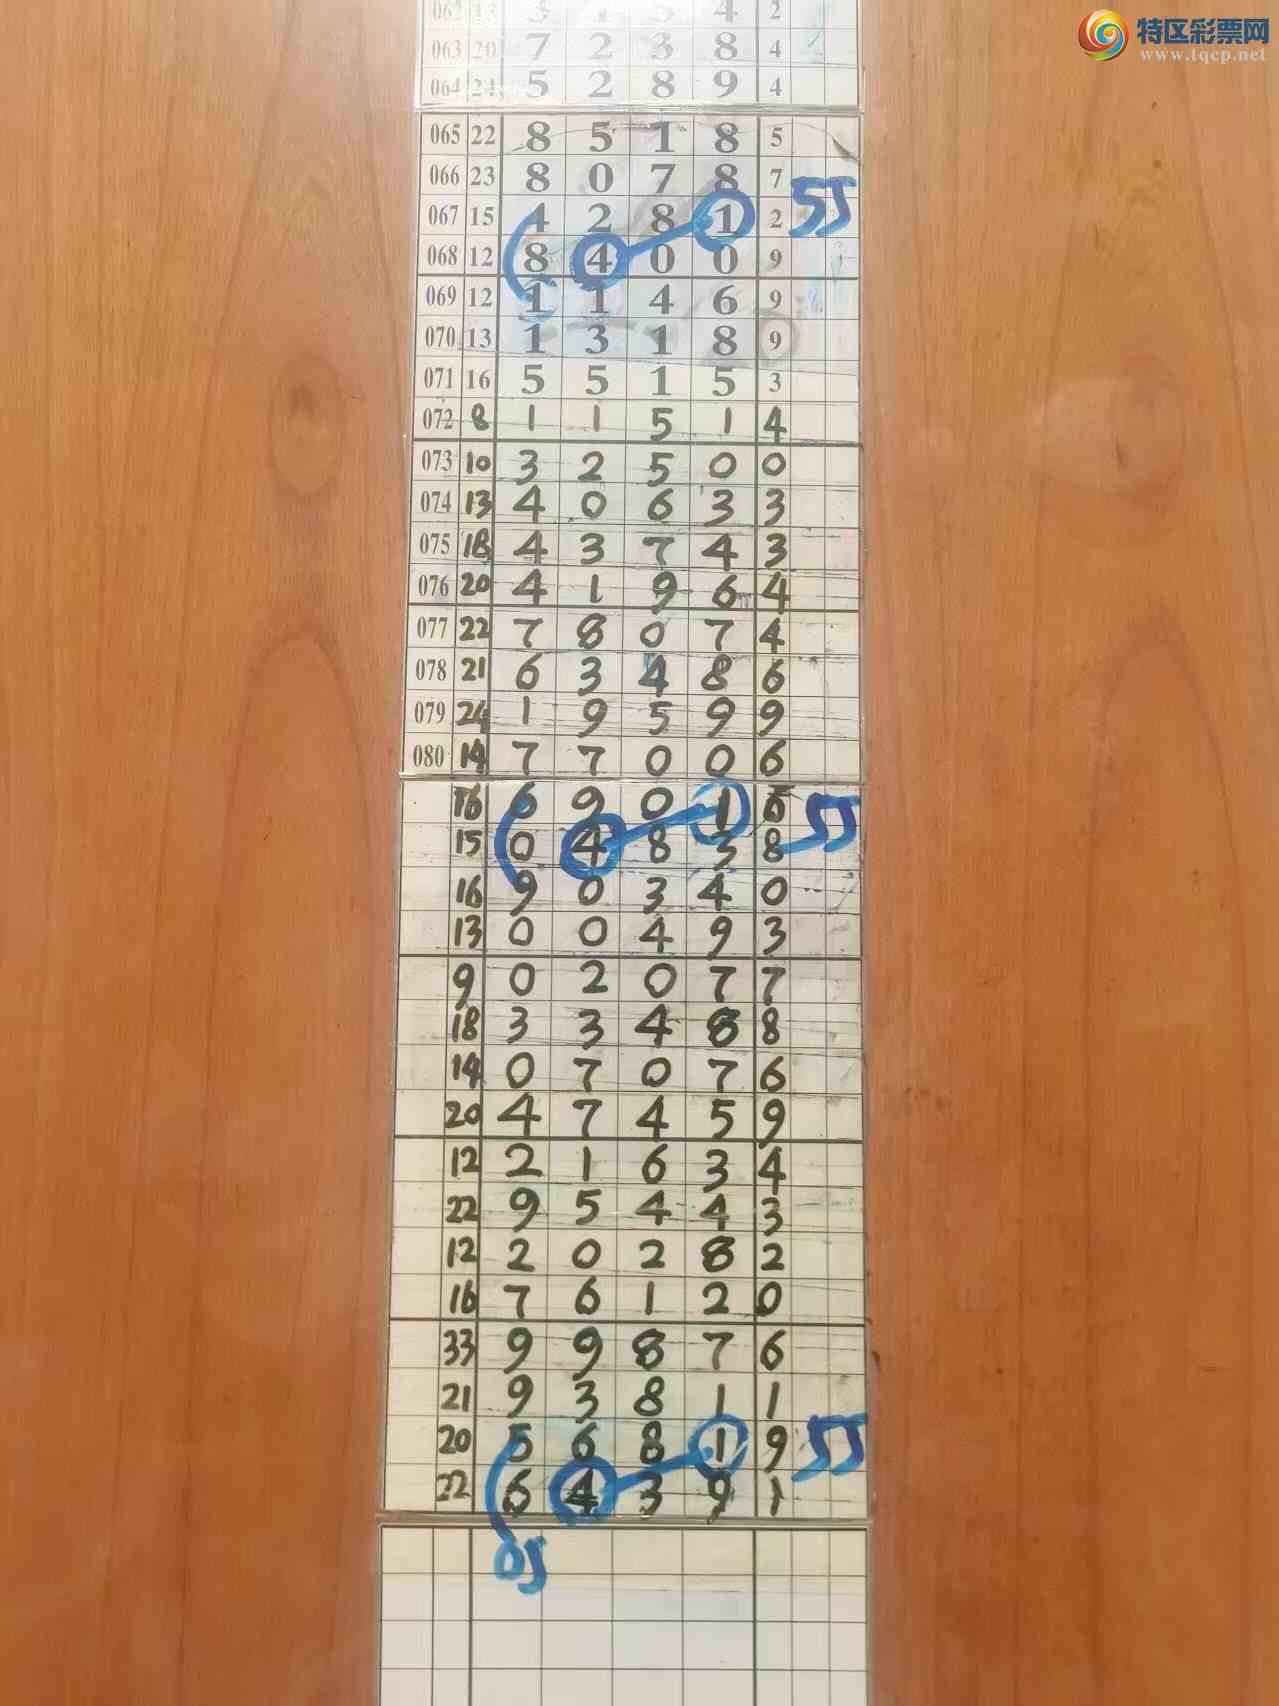 特区彩票网
www.tqcp.net
062 13 3 4 2
063 20 7 2 3 8 4
064 24 5 2 8 9 4
065 22 8 5 1 8 5
066 23 8 0 7 8 7
55
067 15 4 2 8 1 2
068 12 8 4 0 0 9
069 12 1 1 4 6 9
070 13 1 3 1 8 9
071 16 5 5 1 5 3
072 8 1 1 5 1 4
073 10 3 2 5 0 0
074 13 4 0 6 3 3
075 18 4 3 7 4 3
076 20 4 1 9 6 4
077 22 7 8 0 7 4
078 21 6 3 4 8 6
079 24 1 9 5 9 9
080 14 7 7 0 0 6
16 6 9 0 1 6 55
15 0 4 8 3 8
16 9 0 3 4 0
13 0 0 4 9 3
9 0 2 0 7 7
18 3 3 4 8 8
14 0 7 0 7 6
20 4 7 4 5 9
12 2 1 6 3 4
22 9 5 4 4 3
12 2 0 2 8 2
16 7 6 1 2 0
33 9 9 8 7 6
21 9 3 8 1 1
20 5 6 8 1 9 55
22 6 4 3 9 1
05